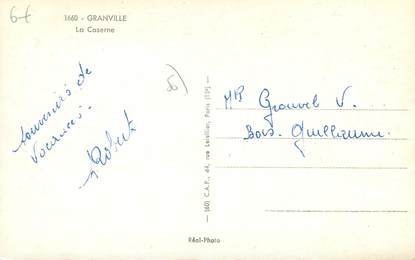 6f
1660 - GRANVILLE
La Caserne
Souvenirs de
Vacances.
Robert
56
(60) C.A.P., 44, rue Letellier, Paris (15e)
MR Grouvel V.
Bois. Guillaume.
Réal-Photo